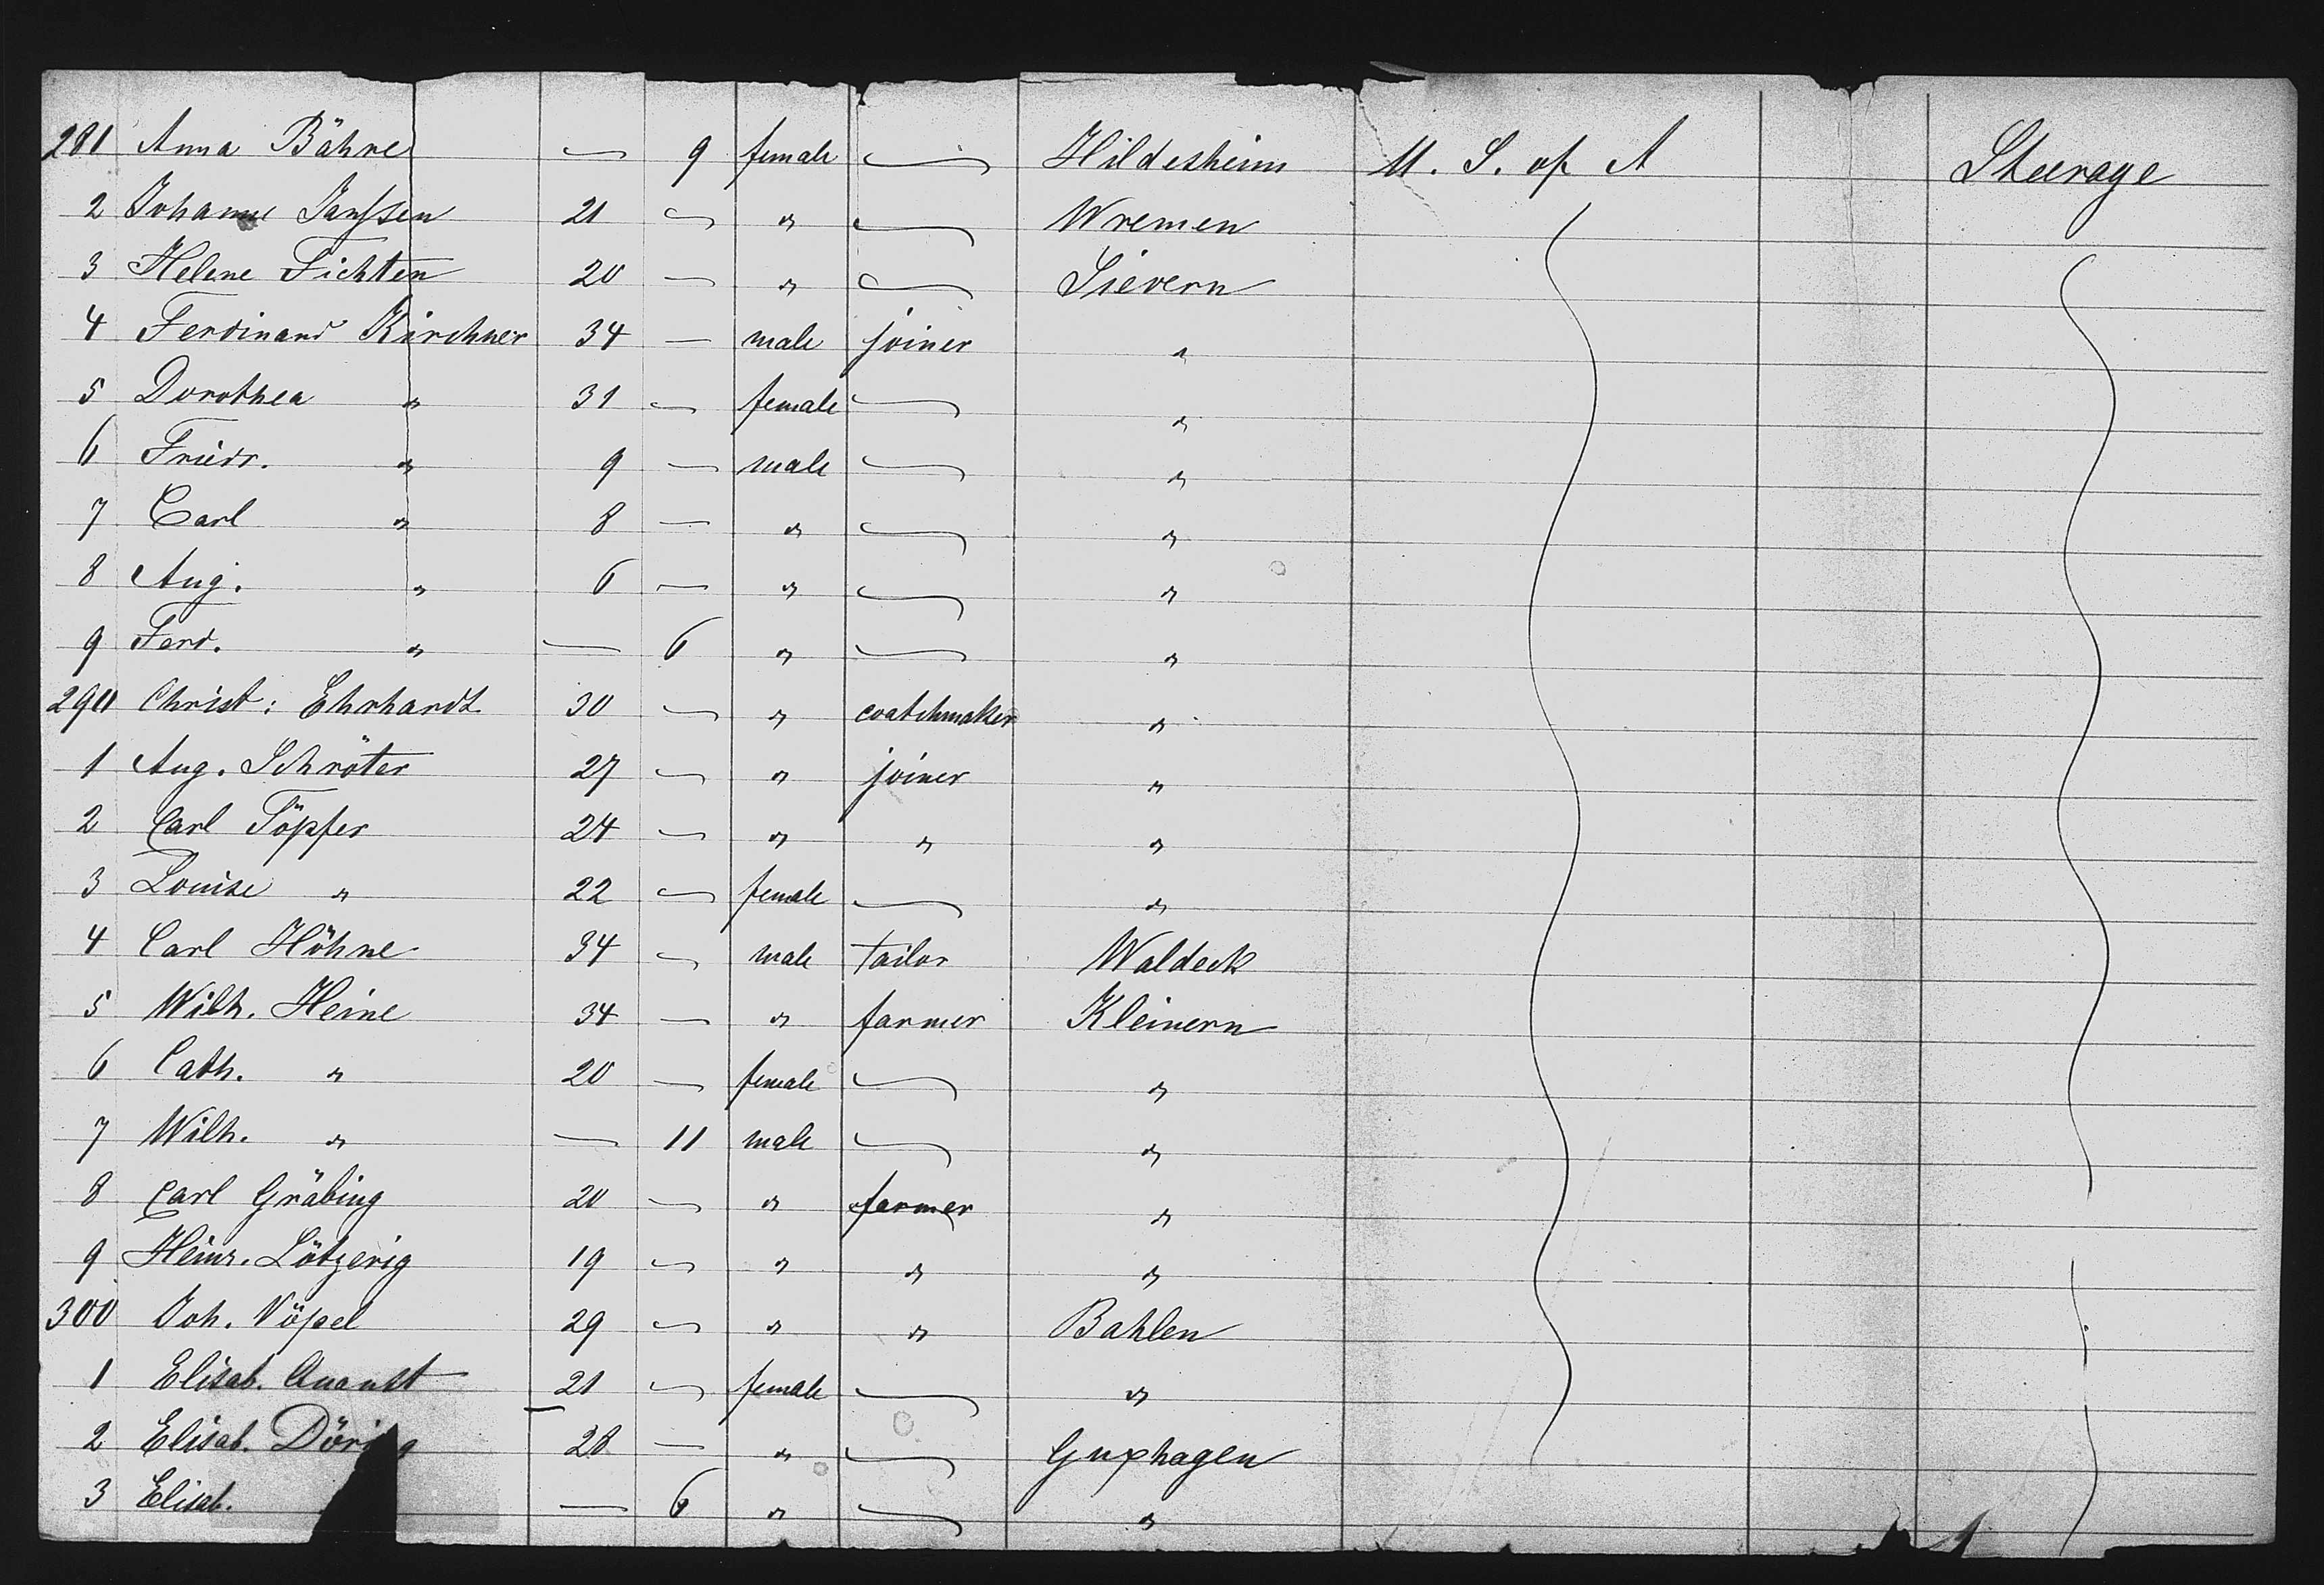 281 Anna Bähre — 9 female — Hildesheim U. S. of A Steerage
2 Johanne Janssen 21 — " — Wremen
3 Helene Fichten 20 — " — Sievern
4 Ferdinand Kirchner 34 — male joiner "
5 Dorothea " 31 — female — "
6 Friedr. " 9 — male — "
7 Carl " 8 — " — "
8 Aug. " 6 — " — "
9 Ferd. " — 6 " — "
290 Christ: Ehrhardt 30 — " coatchmaker "
1 Aug. Schröter 27 — " joiner "
2 Carl Töpfer 24 — " " "
3 Louise " 22 — female — "
4 Carl Höhne 34 — male tailor Waldeck
5 Wilh. Heine 34 — " farmer Kleinern
6 Cath. " 20 — female — "
7 Wilh. " — 11 male — "
8 Carl Gräbing 20 — " farmer "
9 Heinr. Lötzerig 19 — " " "
300 Joh. Vöpel 29 — " " Bahlen
1 Elisab. 21 — female — "
2 Elisab. 28 — " — Guxhagen
3 Elisab. — 6 " — "